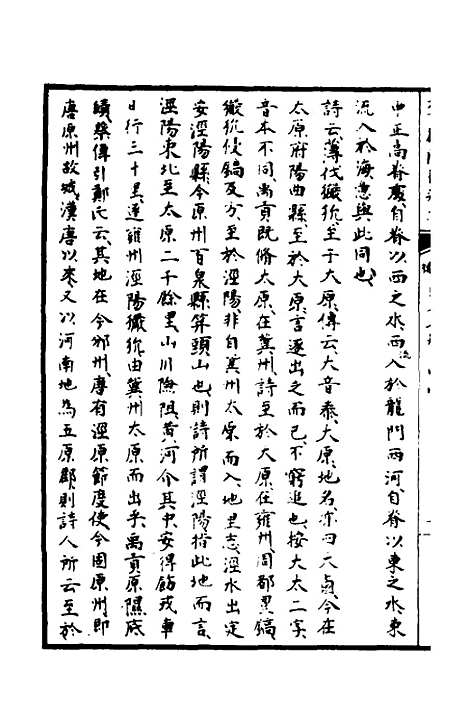 中正高脊處自脊以西之水西入於龍門西河自脊以東之水東
流入於海意與此同也
詩云薄伐玁狁至于大原傳云大音泰大原地名亦曰大鹵今在
太原府陽曲縣至於大原言逐出之而已不窮追也按大太二字
音本不同禹貢既脩太原在冀州詩至於大原在雍州周都豐鎬
玁狁侵鎬及方至於涇陽非自冀州太原而入地里志涇水出定
安涇陽縣今原州百泉縣筓頭山也則詩所謂涇陽指此地而言
涇陽東北至太原二千餘里山川險阻黃河介其中安得飭戎車
日行三十里遂雍州涇陽玁狁由冀州太原而出乎禹貢原隰底
績蔡傳引鄭氏云其地在今邠州唐有涇原節度使今固原州即
唐原州故城漢唐以來又以河南地為五原郡則詩人所云至於